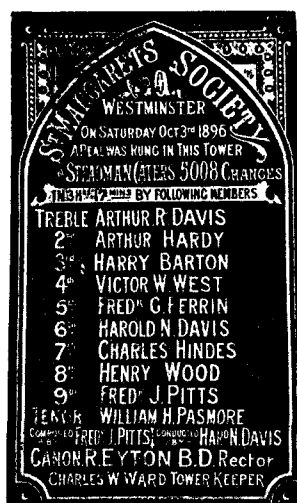 ST MARGARETS SOCIETY
WESTMINSTER
ON SATURDAY OCT 3RD 1896
A PEAL WAS RUNG IN THIS TOWER
STEADMAN CATERS 5008 CHANGES
BY FOLLOWING MEMBERS
TREBLE ARTHUR R DAVIS
2ND ARTHUR HARDY
3RD HARRY BARTON
4TH VICTOR W. WEST
5TH FREDK G. FERRIN
6TH HAROLD N. DAVIS
7TH CHARLES HINDES
8TH HENRY WOOD
9TH FREDK J. PITTS
TENOR WILLIAM H. PASMORE
COMPOSED BY FREDK J. PITTS; CONDUCTED BY HAROD N. DAVIS
CANON. R. EYTON B.D. Rector
CHARLES W WARD TOWER KEEPER